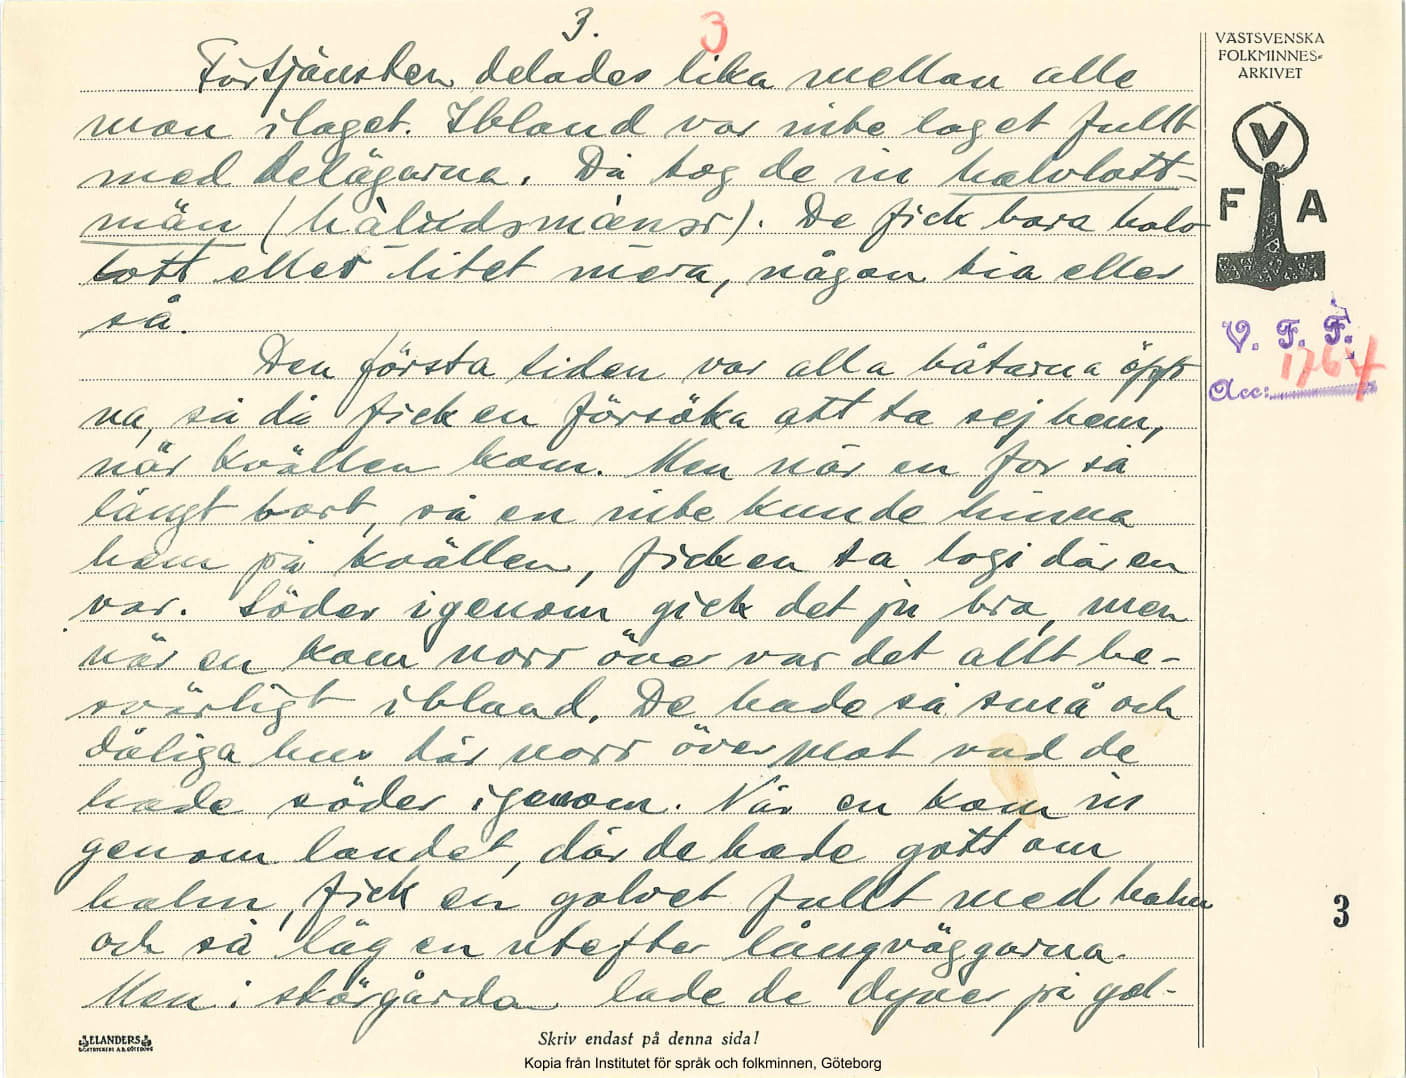 3. 3
Förtjänsten delades lika mellan alle
man i laget. Ibland var inte laget fullt
med delägarna. Då tog de in halvlott-
män (hålvdsmänər). De fick bara halv
lott eller litet mera, någon tia eller
så.
Den första tiden var alla båtarna öpp
na, så då fick en försöka att ta sej hem,
när kvällen kom. Men när en for så
långt bort, så en inte kunde hinna
hem på kvällen, fick en ta logi där en
var. Söder igenom gick det ju bra, men
när en kom norr över var det allt be-
svärligt ibland. De hade så små och
dåliga hus där norr över mot vad de
hade söder igenom. När en kom in
genom landet, där de hade gott om
halm, fick en golvet fullt med halm
och så låg en utefter långväggarna.
Men i skärgårda lade de dyner på gol-
VÄSTSVENSKA
FOLKMINNES-
ARKIVET
V
F A
V. F. F.
Acc: 1764
3
ELANDERS
BOKTRYCKERI A.B. GÖTEBORG
Skriv endast på denna sida!
Kopia från Institutet för språk och folkminnen, Göteborg